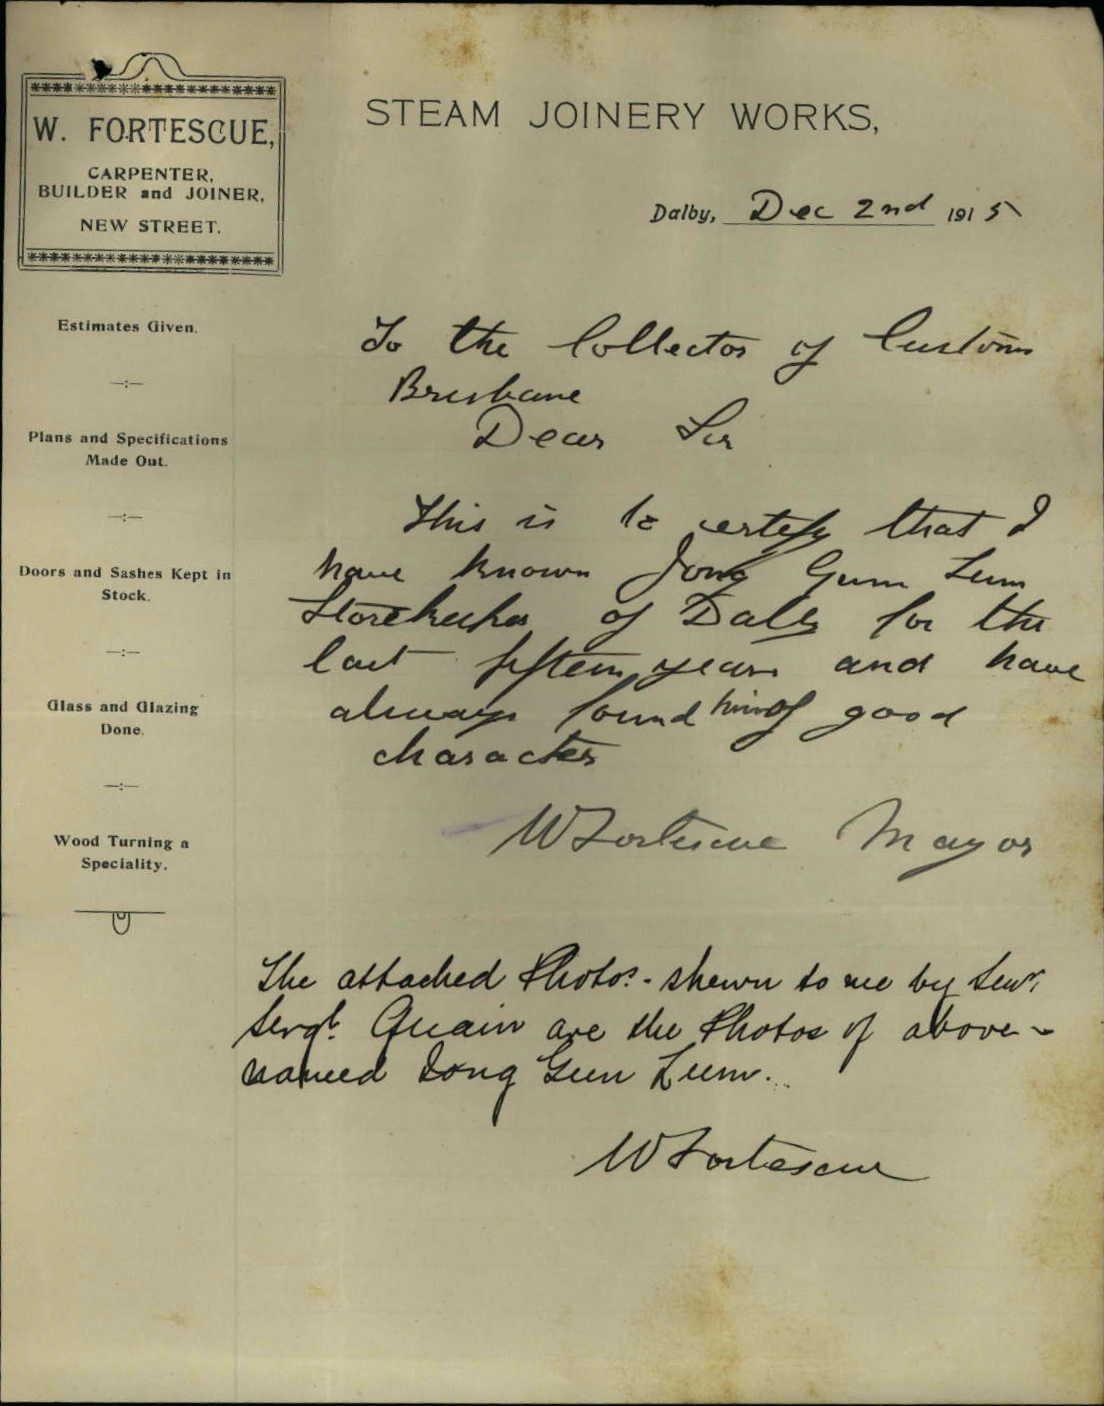 W. FORTESCUE,
CARPENTER,
BUILDER and JOINER,
NEW STREET.
Estimates Given.
Plans and Specifications
Made Out.
Doors and Sashes Kept in
Stock.
Glass and Glazing
Done.
Wood Turning a
Speciality.
STEAM JOINERY WORKS,
Dalby, Dec 2nd 1915
To the Collector of Customs
Brisbane
Dear Sir
This is to certefy that I
have known Jong Gum Lum
Storekeeper of Dalby for the
last fifteen years and have
always found him of good
character
W Fortescue Mayor
The attached Photos. - shewn to me by Senr.
Sergt. Quain are the Photos of above-
named Jong Gun Lum.
W Fortescue